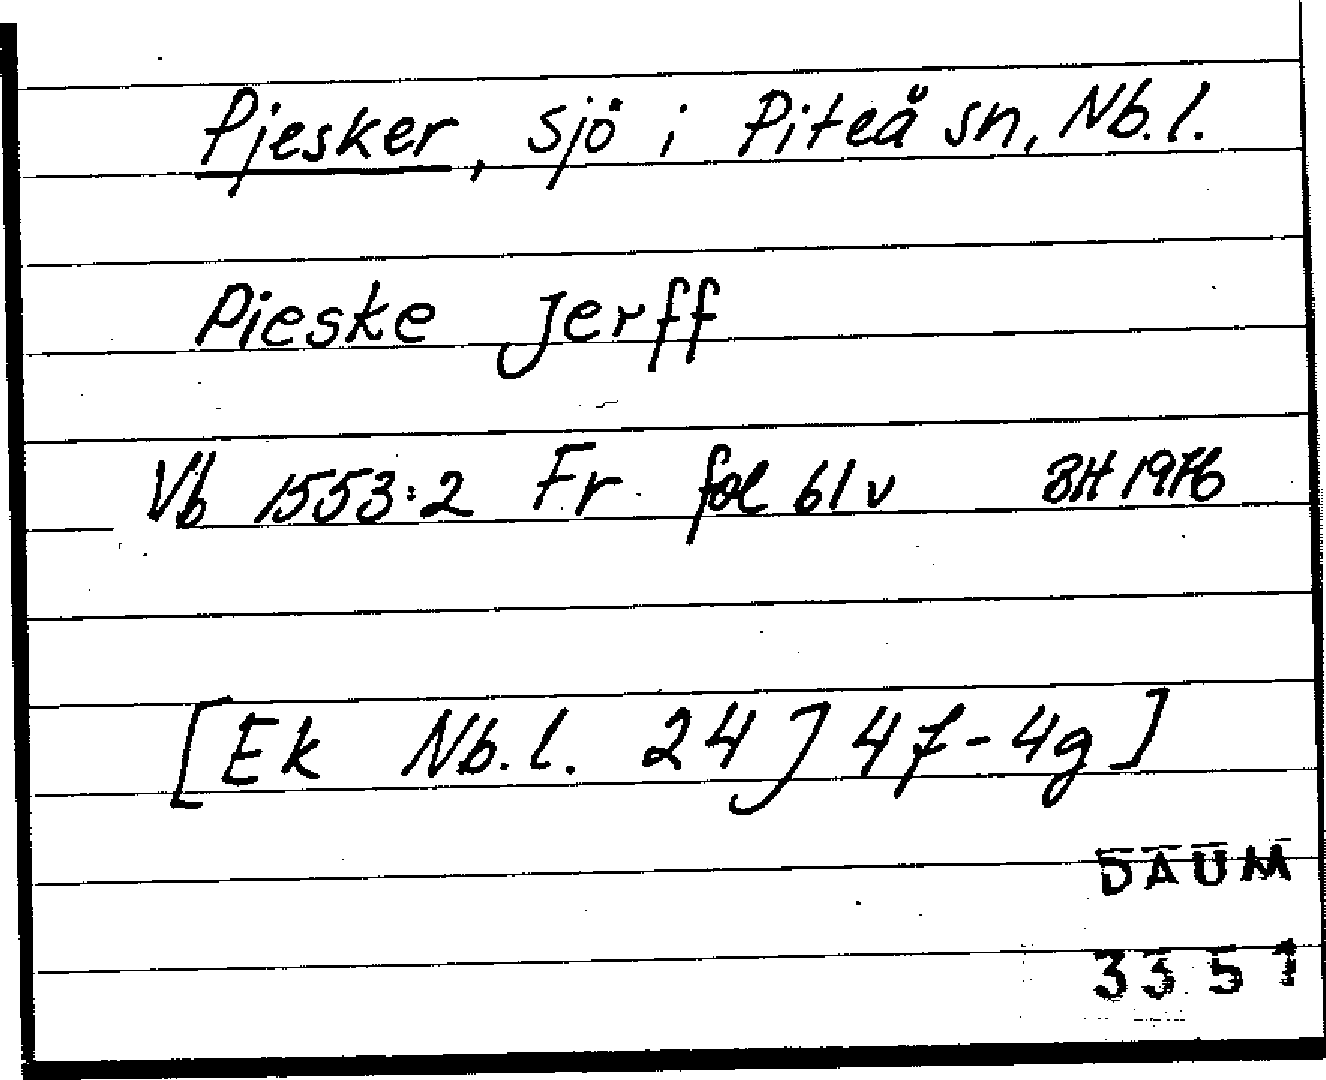 Pjesker, sjö i Piteå sn, Nb.l.
Pieske Jerff
Vb 1553:2 Fr fol 61 v BH 1976
[Ek Nb.l. 24 J 4f-4g]
DAUM
3351